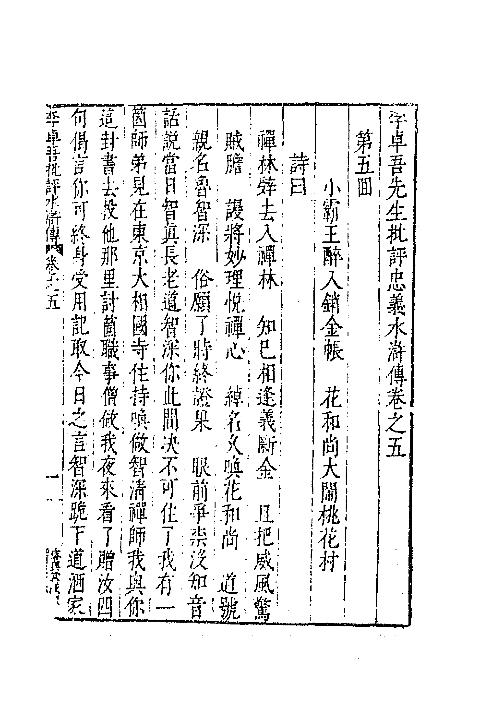 李卓吾先生批評忠義水滸傳卷之五
第五回
小霸王醉入銷金帳　花和尚大鬧桃花村
詩曰
禪林辭去入禪林　知己相逢義斷金　且把威風驚
賊膽　謾將妙理悅禪心　綽名久喚花和尚　道號
親名魯智深　俗願了時終證果　眼前爭柰沒知音
話說當日智真長老道智深你此間決不可住了我有一
箇師弟見在東京大相國寺住持喚做智清禪師我與你
這封書去投他那里討箇職事僧做我夜來看了贈汝四
句偈言你可終身受用記取今日之言智深跪下道洒家
李卓吾批評水滸傳　卷之五　一